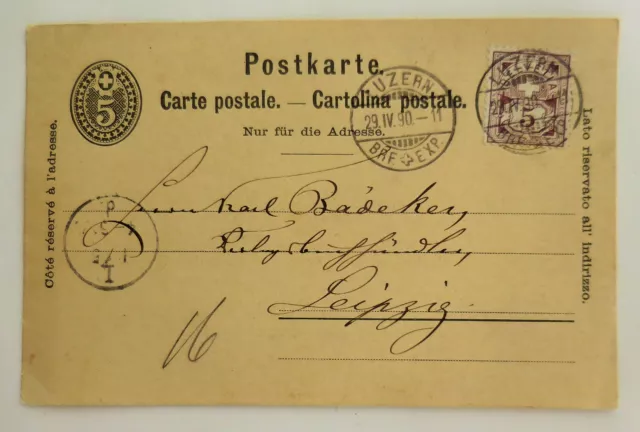 Postkarte.
Carte postale. — Cartolina postale.
Nur für die Adresse.
5
LUZERN
29.IV.90.–11
BRF. EXP.
LUZERN
5
Côté réservé à l'adresse.
Lato riservato all' indirizzo.
Herrn Karl Bädeker,
Verlagsbuchhändler,
Leipzig.
16